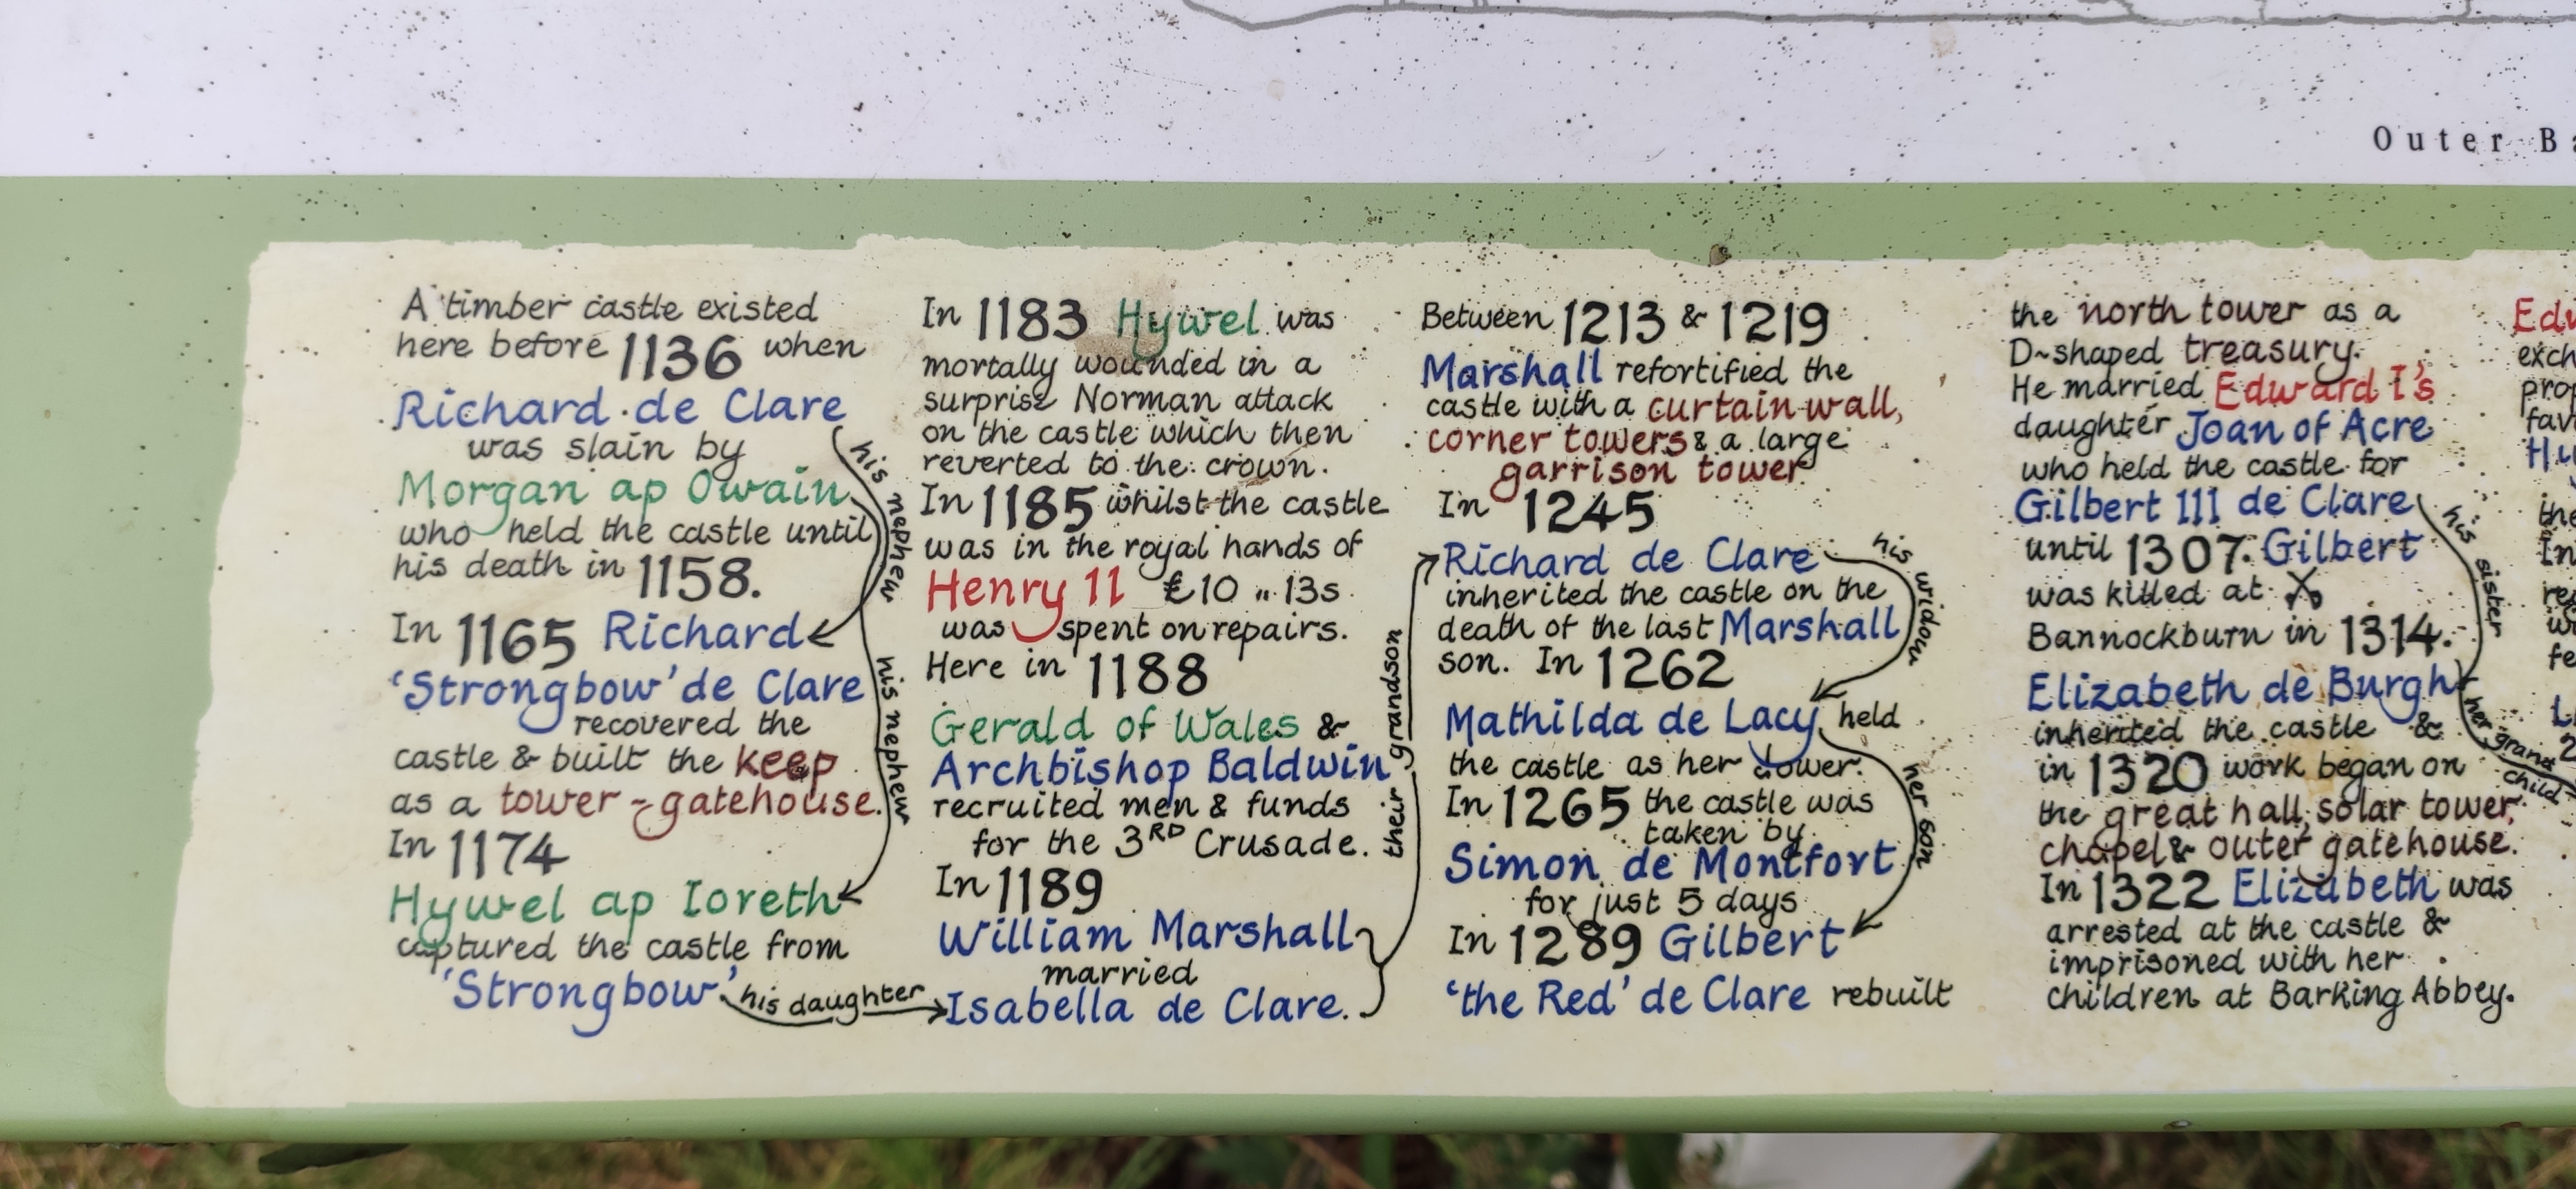 Outer
A timber castle existed
here before 1136 when
Richard de Clare
was slain by
Morgan ap Owain
who held the castle until
his death in 1158.
his nephew
In 1165 Richard
'Strongbow' de Clare
recovered the
castle & built the keep
as a tower-gatehouse.
his nephew
In 1174
Hywel ap Ioreth
captured the castle from
'Strongbow'
his daughter
In 1183 Hywel was
mortally wounded in a
surprise Norman attack
on the castle which then
reverted to the crown.
In 1185 whilst the castle
was in the royal hands of
Henry 11 £10 " 13s
was spent on repairs.
Here in 1188
Gerald of Wales &
Archbishop Baldwin
recruited men & funds
for the 3RD Crusade.
In 1189
William Marshall
married
Isabella de Clare.
their grandson
Between 1213 & 1219
Marshall refortified the
castle with a curtain wall,
corner towers & a large
garrison tower
In 1245
Richard de Clare
inherited the castle on the
death of the last Marshall
son. In 1262
his widow
Mathilda de Lacy held
the castle as her dower.
In 1265 the castle was
taken by
Simon de Montfort
for just 5 days
her son
In 1289 Gilbert
'the Red' de Clare rebuilt
the north tower as a
D~shaped treasury.
He married Edward I's
daughter Joan of Acre
who held the castle for
Gilbert 111 de Clare
until 1307. Gilbert
was killed at
Bannockburn in 1314.
his sister
Elizabeth de Burgh
inherited the castle &
in 1320 work began on
the great hall, solar tower,
chapel & outer gatehouse.
her grand
child
In 1322 Elizabeth was
arrested at the castle &
imprisoned with her
children at Barking Abbey.